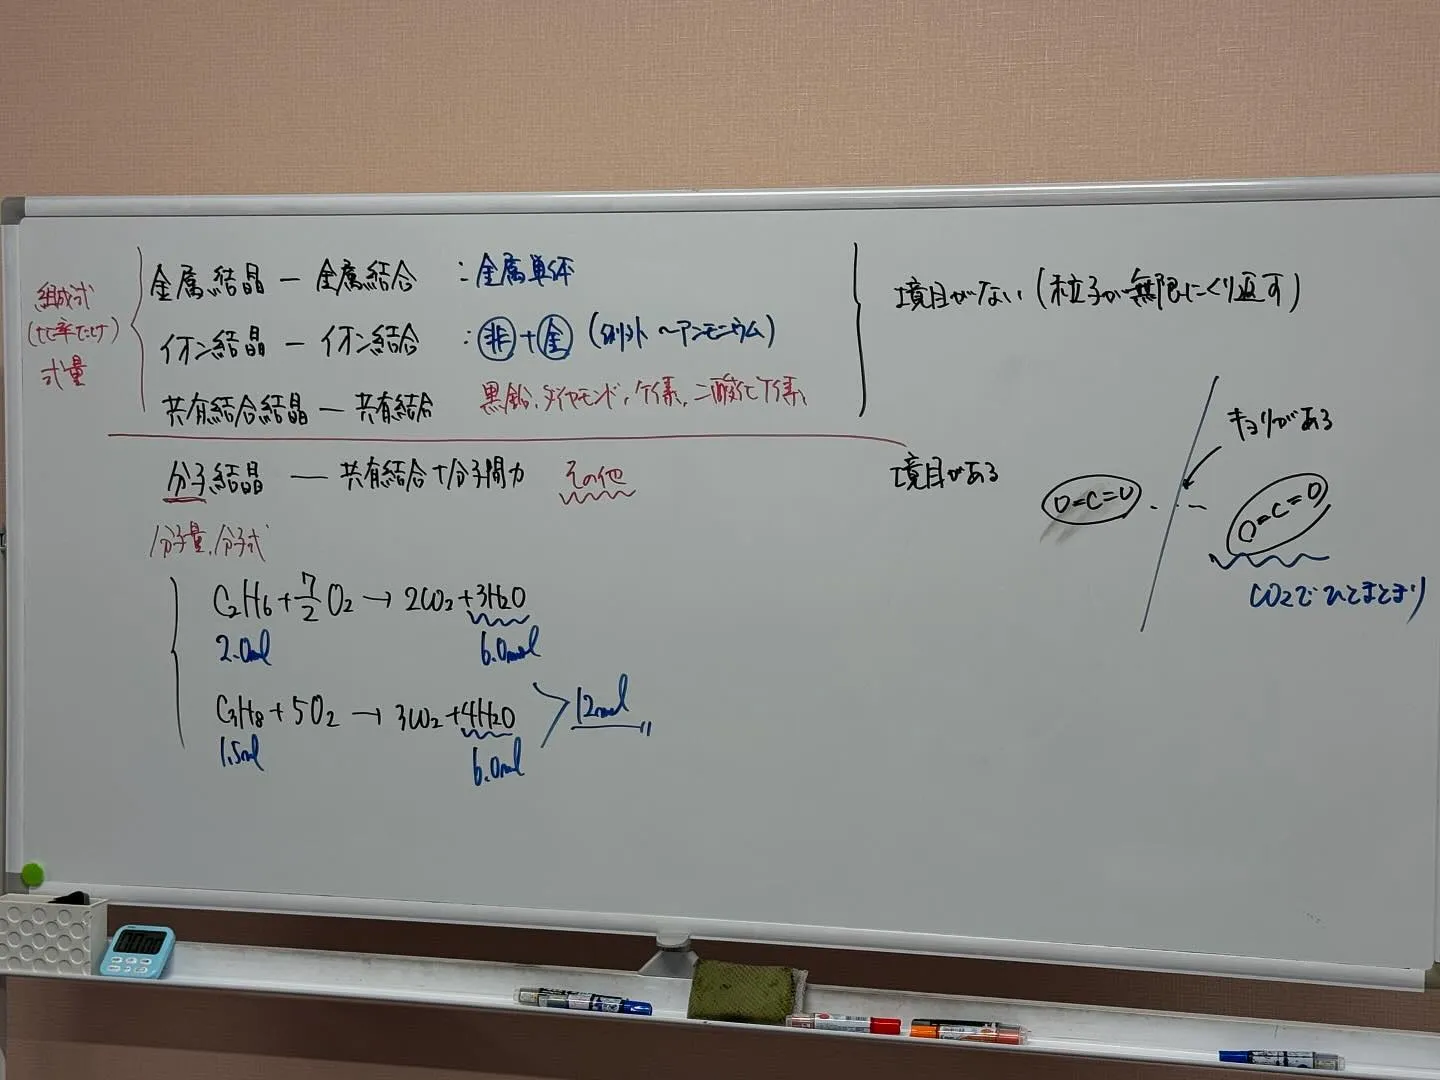 組成式
(比率だけ)
式量
金属結晶 － 金属結合 : 金属単体
イオン結晶 － イオン結合 : 非 + 金 (例外 〜アンモニウム)
共有結合結晶 － 共有結合 黒鉛、ダイヤモンド、ケイ素、二酸化ケイ素
境目がない (粒子が無限にくり返す)
分子結晶 － 共有結合+分子間力 その他
境目がある
分子量、分子式
C2H6 + 7/2 O2 → 2CO2 + 3H2O
2.0mol 6.0mol
C3H8 + 5O2 → 3CO2 + 4H2O
1.5mol 6.0mol
12mol
キョリがある
O=C=O
O=C=O
CO2でひとまとまり